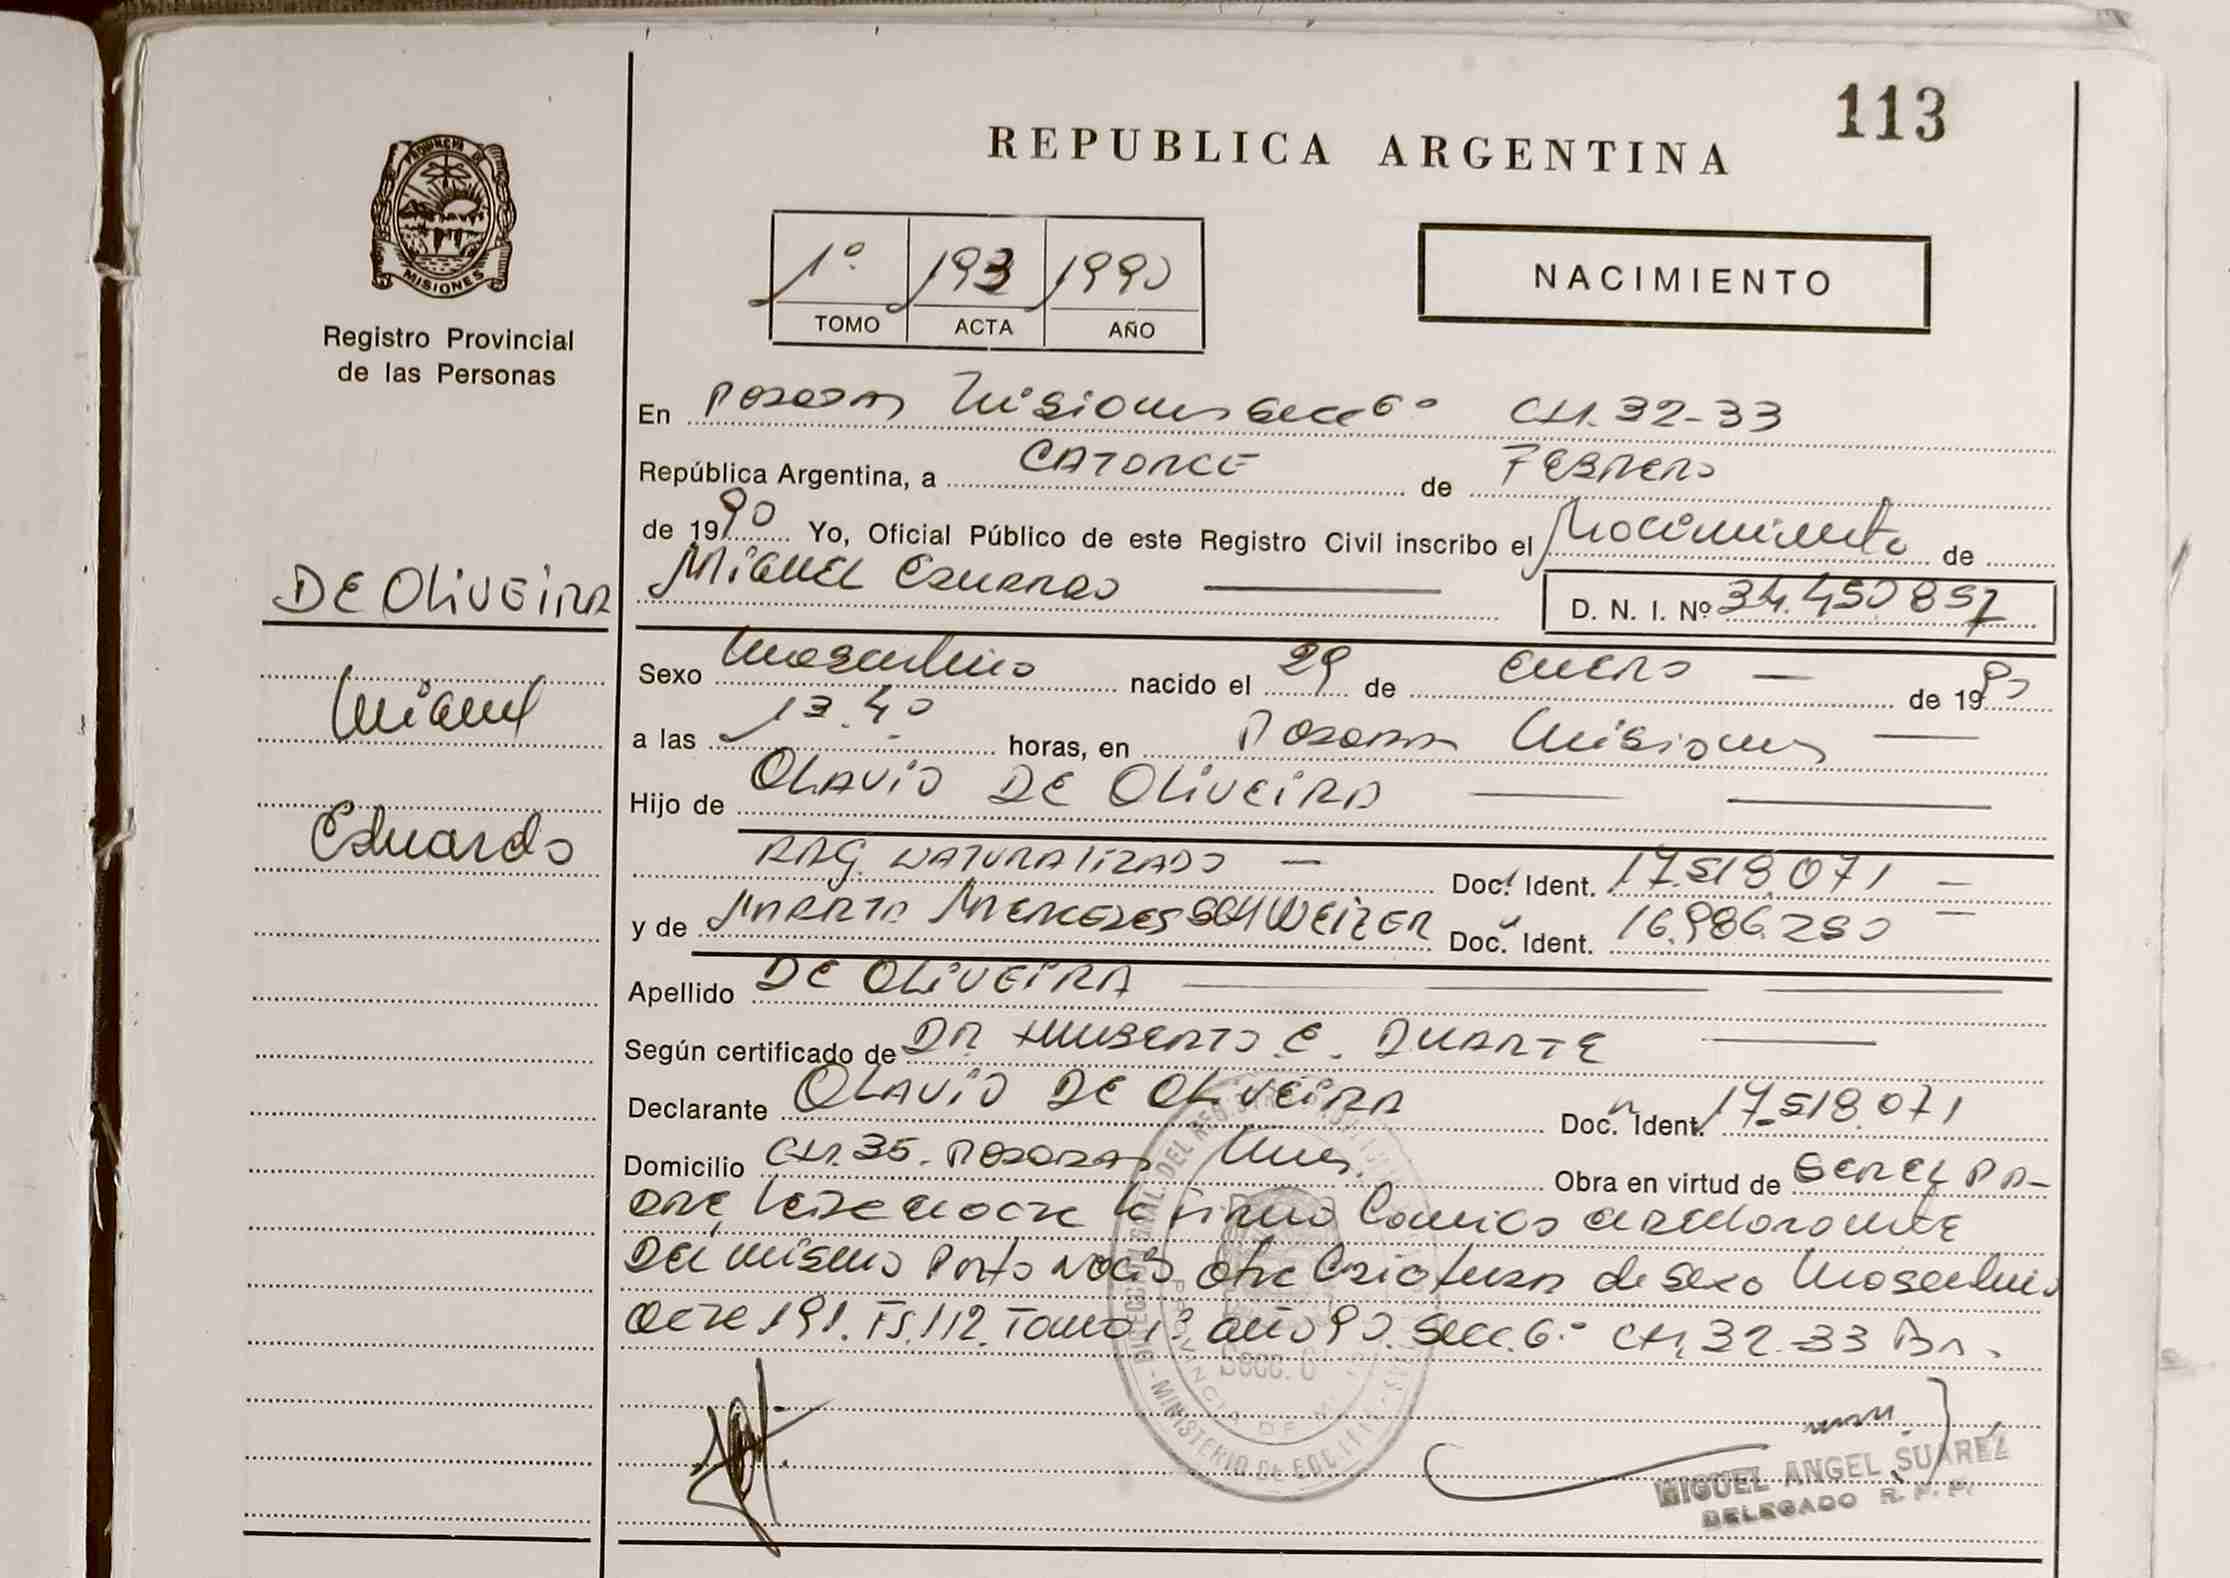 113
REPUBLICA ARGENTINA
PROVINCIA DE
MISIONES
Registro Provincial
de las Personas
1º 193 1990
TOMO ACTA AÑO
NACIMIENTO
En Posadas Misiones Secc 6º CH. 32-33
República Argentina, a CATORCE de FEBRERO
de 1990 Yo, Oficial Público de este Registro Civil inscribo el Nacimiento de
MIGUEL EDUARDO
D. N. I. Nº 34.450.857
DE OLIVEIRA
Miguel
Eduardo
Sexo Masculino nacido el 29 de Enero de 1990
a las 13.40 horas, en Posadas Misiones
Hijo de OLAVIO DE OLIVEIRA
ARG. NATURALIZADO Doc. Ident. 17.518.071
y de MARTA MERCEDES SCHWEIZER Doc. Ident. 16.986.250
Apellido DE OLIVEIRA
Según certificado de DR HUMBERTO E. DUARTE
Declarante OLAVIO DE OLIVEIRA Doc. Ident. 17.518.071
Domicilio CH. 35. POSADAS Mnes. Obra en virtud de SER EL PA-
DRE, Leide el acta la firma Conmigo el declarante
Del mismo Parto Nacio otra Criatura de sexo Masculino
acta 191. Fs. 112. Tomo 1º año 90. Secc. 6º CH. 32-33
MIGUEL ANGEL SUAREZ
DELEGADO R. P. P.